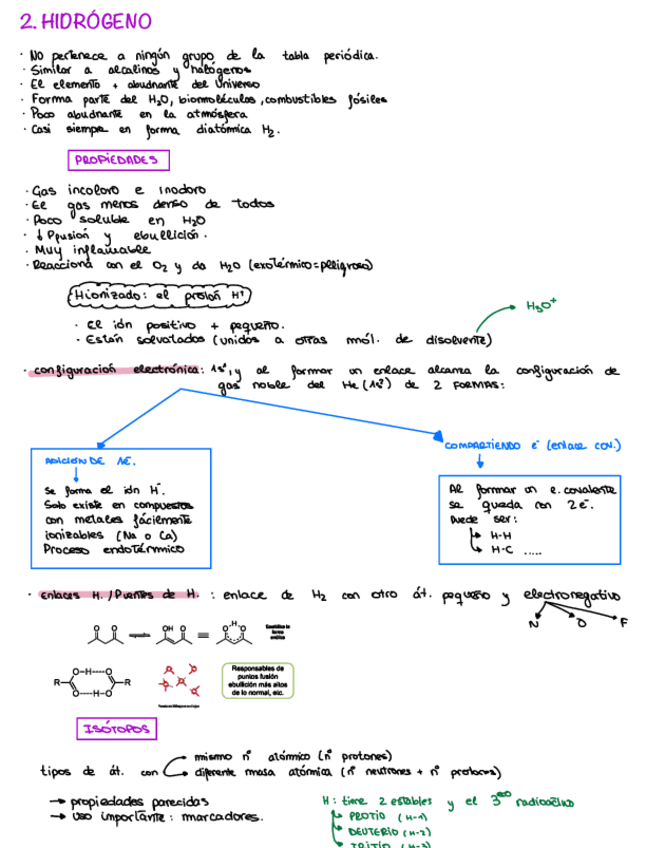 2. HIDRÓGENO
· No pertenece a ningún grupo de la tabla periódica.
· Similar a alcalinos y halógenos
· El elemento + abudnante del Universo
· Forma parte del H2O, biomoléculas, combustibles fósiles
· Poco abudnante en la atmósfera
· Casi siempre en forma diatómica H2.
PROPIEDADES
· Gas incoloro e inodoro
· El gas menos denso de todos
· Poco soluble en H2O
· ↓ Pfusión y ebullición.
· Muy inflamable
· Reacciona con el O2 y da H2O (exotérmico=peligroso)
Hionizado: el protón H+
H3O+
· El ión positivo + pequeño.
· Están solvatados (unidos a otras mól. de disolvente)
· configuración electrónica: 1s1, y al formar un enlace alcanza la configuración de
gas noble del He (1s2) de 2 FORMAS:
ADICIÓN DE 1E.
Se forma el ión H-.
Solo existe en compuestos
con metales fácilmente
ionizables (Na o Ca)
Proceso endotérmico
COMPARTIENDO e- (enlace cov.)
Al formar un e. covalente
se queda con 2e-.
Puede ser:
H-H
H-C .....
· enlaces H. / Puentes de H. : enlace de H2 con otro át. pequeño y electronegativo
N O F
O O OH O O H O
Estabiliza la
forma
enólica
R O-H----O R
O----H-O
Responsables de
puntos fusión
ebullición más altos
de lo normal, etc.
ISÓTOPOS
tipos de át. con
mismo nº atómico (nº protones)
diferente masa atómica (nº neutrones + nº protones)
→ propiedades parecidas
→ uso importante: marcadores.
H: tiene 2 estables y el 3ero radioactivo
PROTIO (H-1)
DEUTERIO (H-2)
TRITIO (H-3)